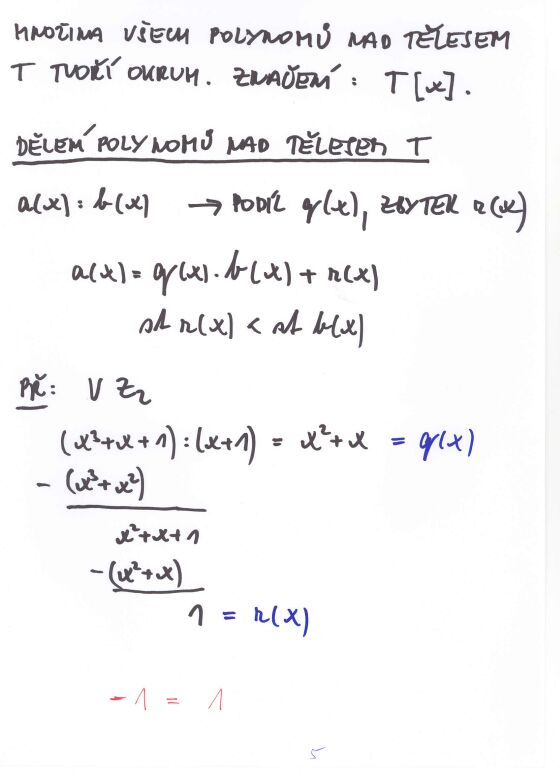 MNOŽINA VŠECH POLYNOMŮ NAD TĚLESEM
T TVOŘÍ OKRUH. ZNAČENÍ: T[x].
DĚLENÍ POLYNOMŮ NAD TĚLESEM T
a(x) : b(x) → PODÍL q(x), ZBYTEK r(x)
a(x) = q(x) · b(x) + r(x)
st r(x) < st b(x)
PŘ: V Z₂
(x³+x+1) : (x+1) = x²+x = q(x)
- (x³+x²)
x²+x+1
- (x²+x)
1 = r(x)
-1 = 1
5